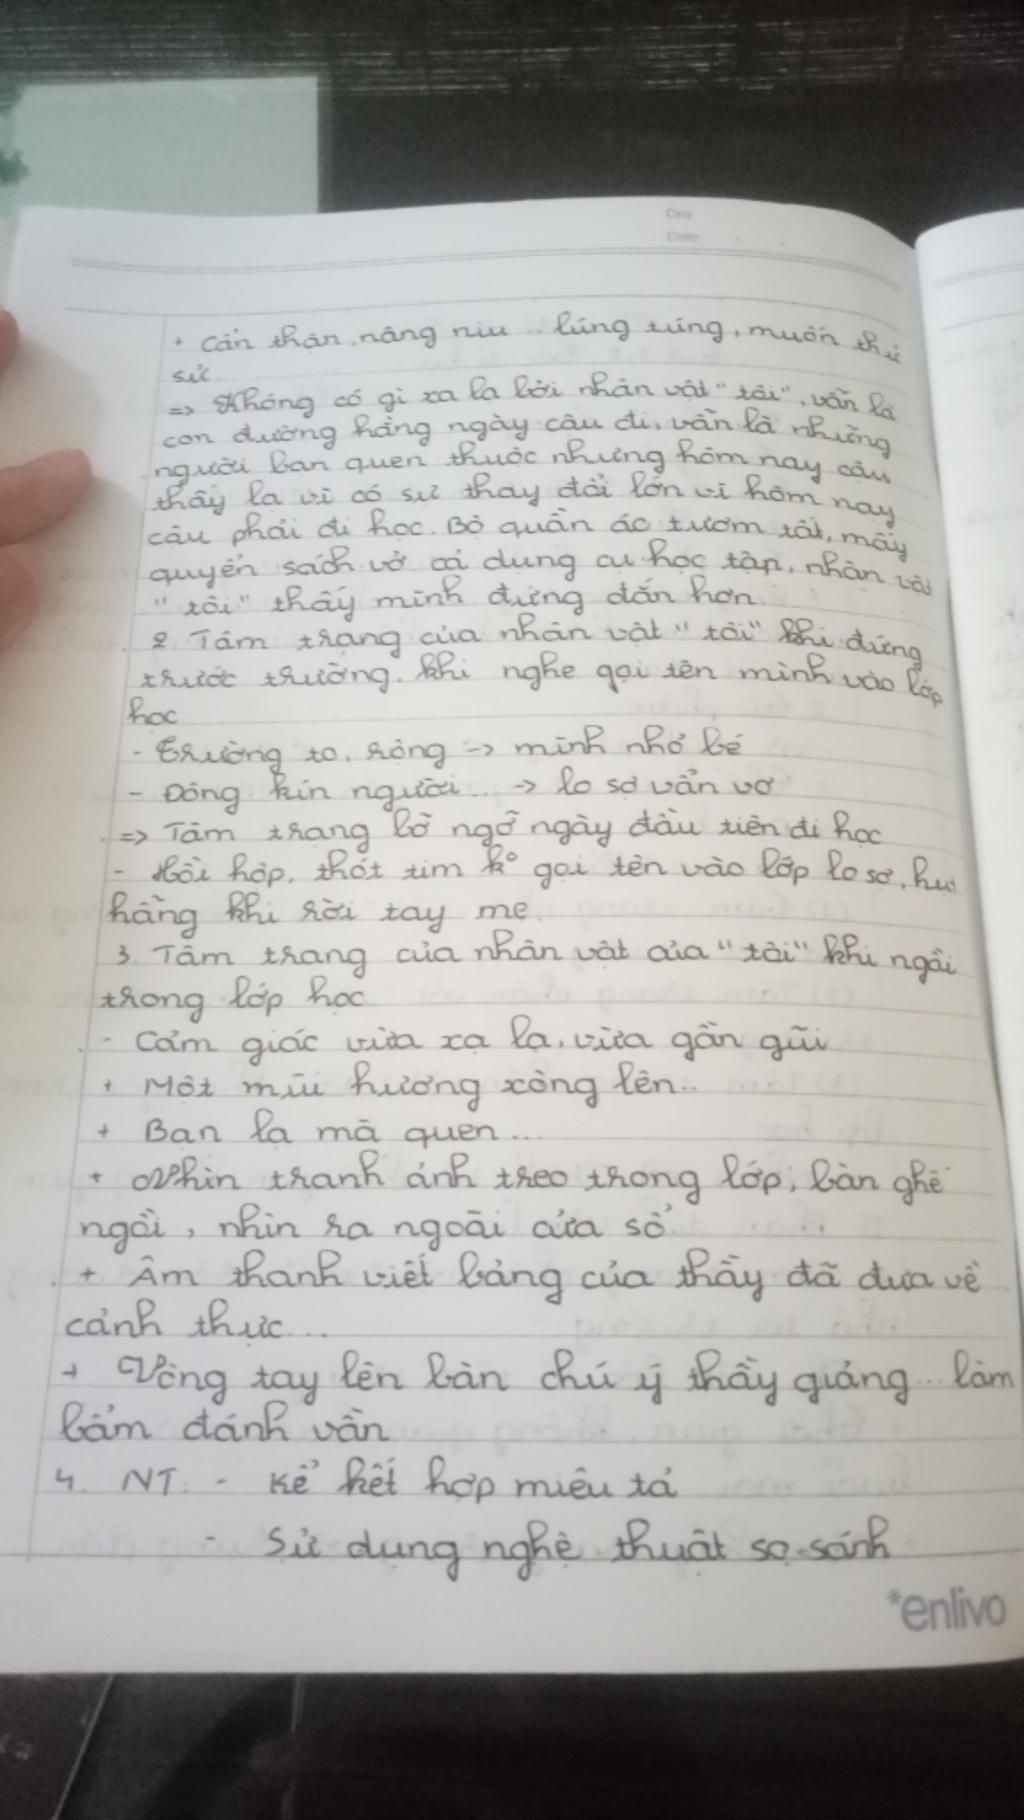 Day
Date
+ Cẩn thận, nâng niu .. lúng túng, muốn thử
sử.
=> Không có gì xa lạ bởi nhân vật "tôi", vẫn là
con đường hằng ngày cậu đi, vẫn là những
người bạn quen thuộc nhưng hôm nay cậu
thấy lạ vì có sự thay đổi lớn vì hôm nay
cậu phải đi học. Bộ quần áo tươm tất, mấy
quyển sách vở cả dụng cụ học tập, nhân vật
"tôi" thấy mình đứng đắn hơn.
2. Tâm trạng của nhân vật "tôi" khi đứng
trước trường. khi nghe gọi tên mình vào lớp
học
- Trường to, rộng -> mình nhỏ bé
- Đông kín người... -> lo sợ vẩn vơ
=> Tâm trạng bỡ ngỡ ngày đầu tiên đi học
- Hồi hộp, thót tim k° gọi tên vào lớp lo sợ, hụt
hẫng khi rời tay mẹ.
3. Tâm trạng của nhân vật của "tôi" khi ngồi
trong lớp học.
- Cảm giác vừa xa lạ, vừa gần gũi
+ Một mùi hương xông lên..
+ Bạn lạ mà quen...
+ Nhìn tranh ảnh treo trong lớp, bàn ghế
ngồi, nhìn ra ngoài cửa sổ
+ Âm thanh viết bảng của thầy đã đưa về
cảnh thực...
+ Vòng tay lên bàn chú ý thầy giảng... lẩm
bẩm đánh vần
4. NT. - Kể kết hợp miêu tả
- Sử dụng nghệ thuật so sánh
*enlivo